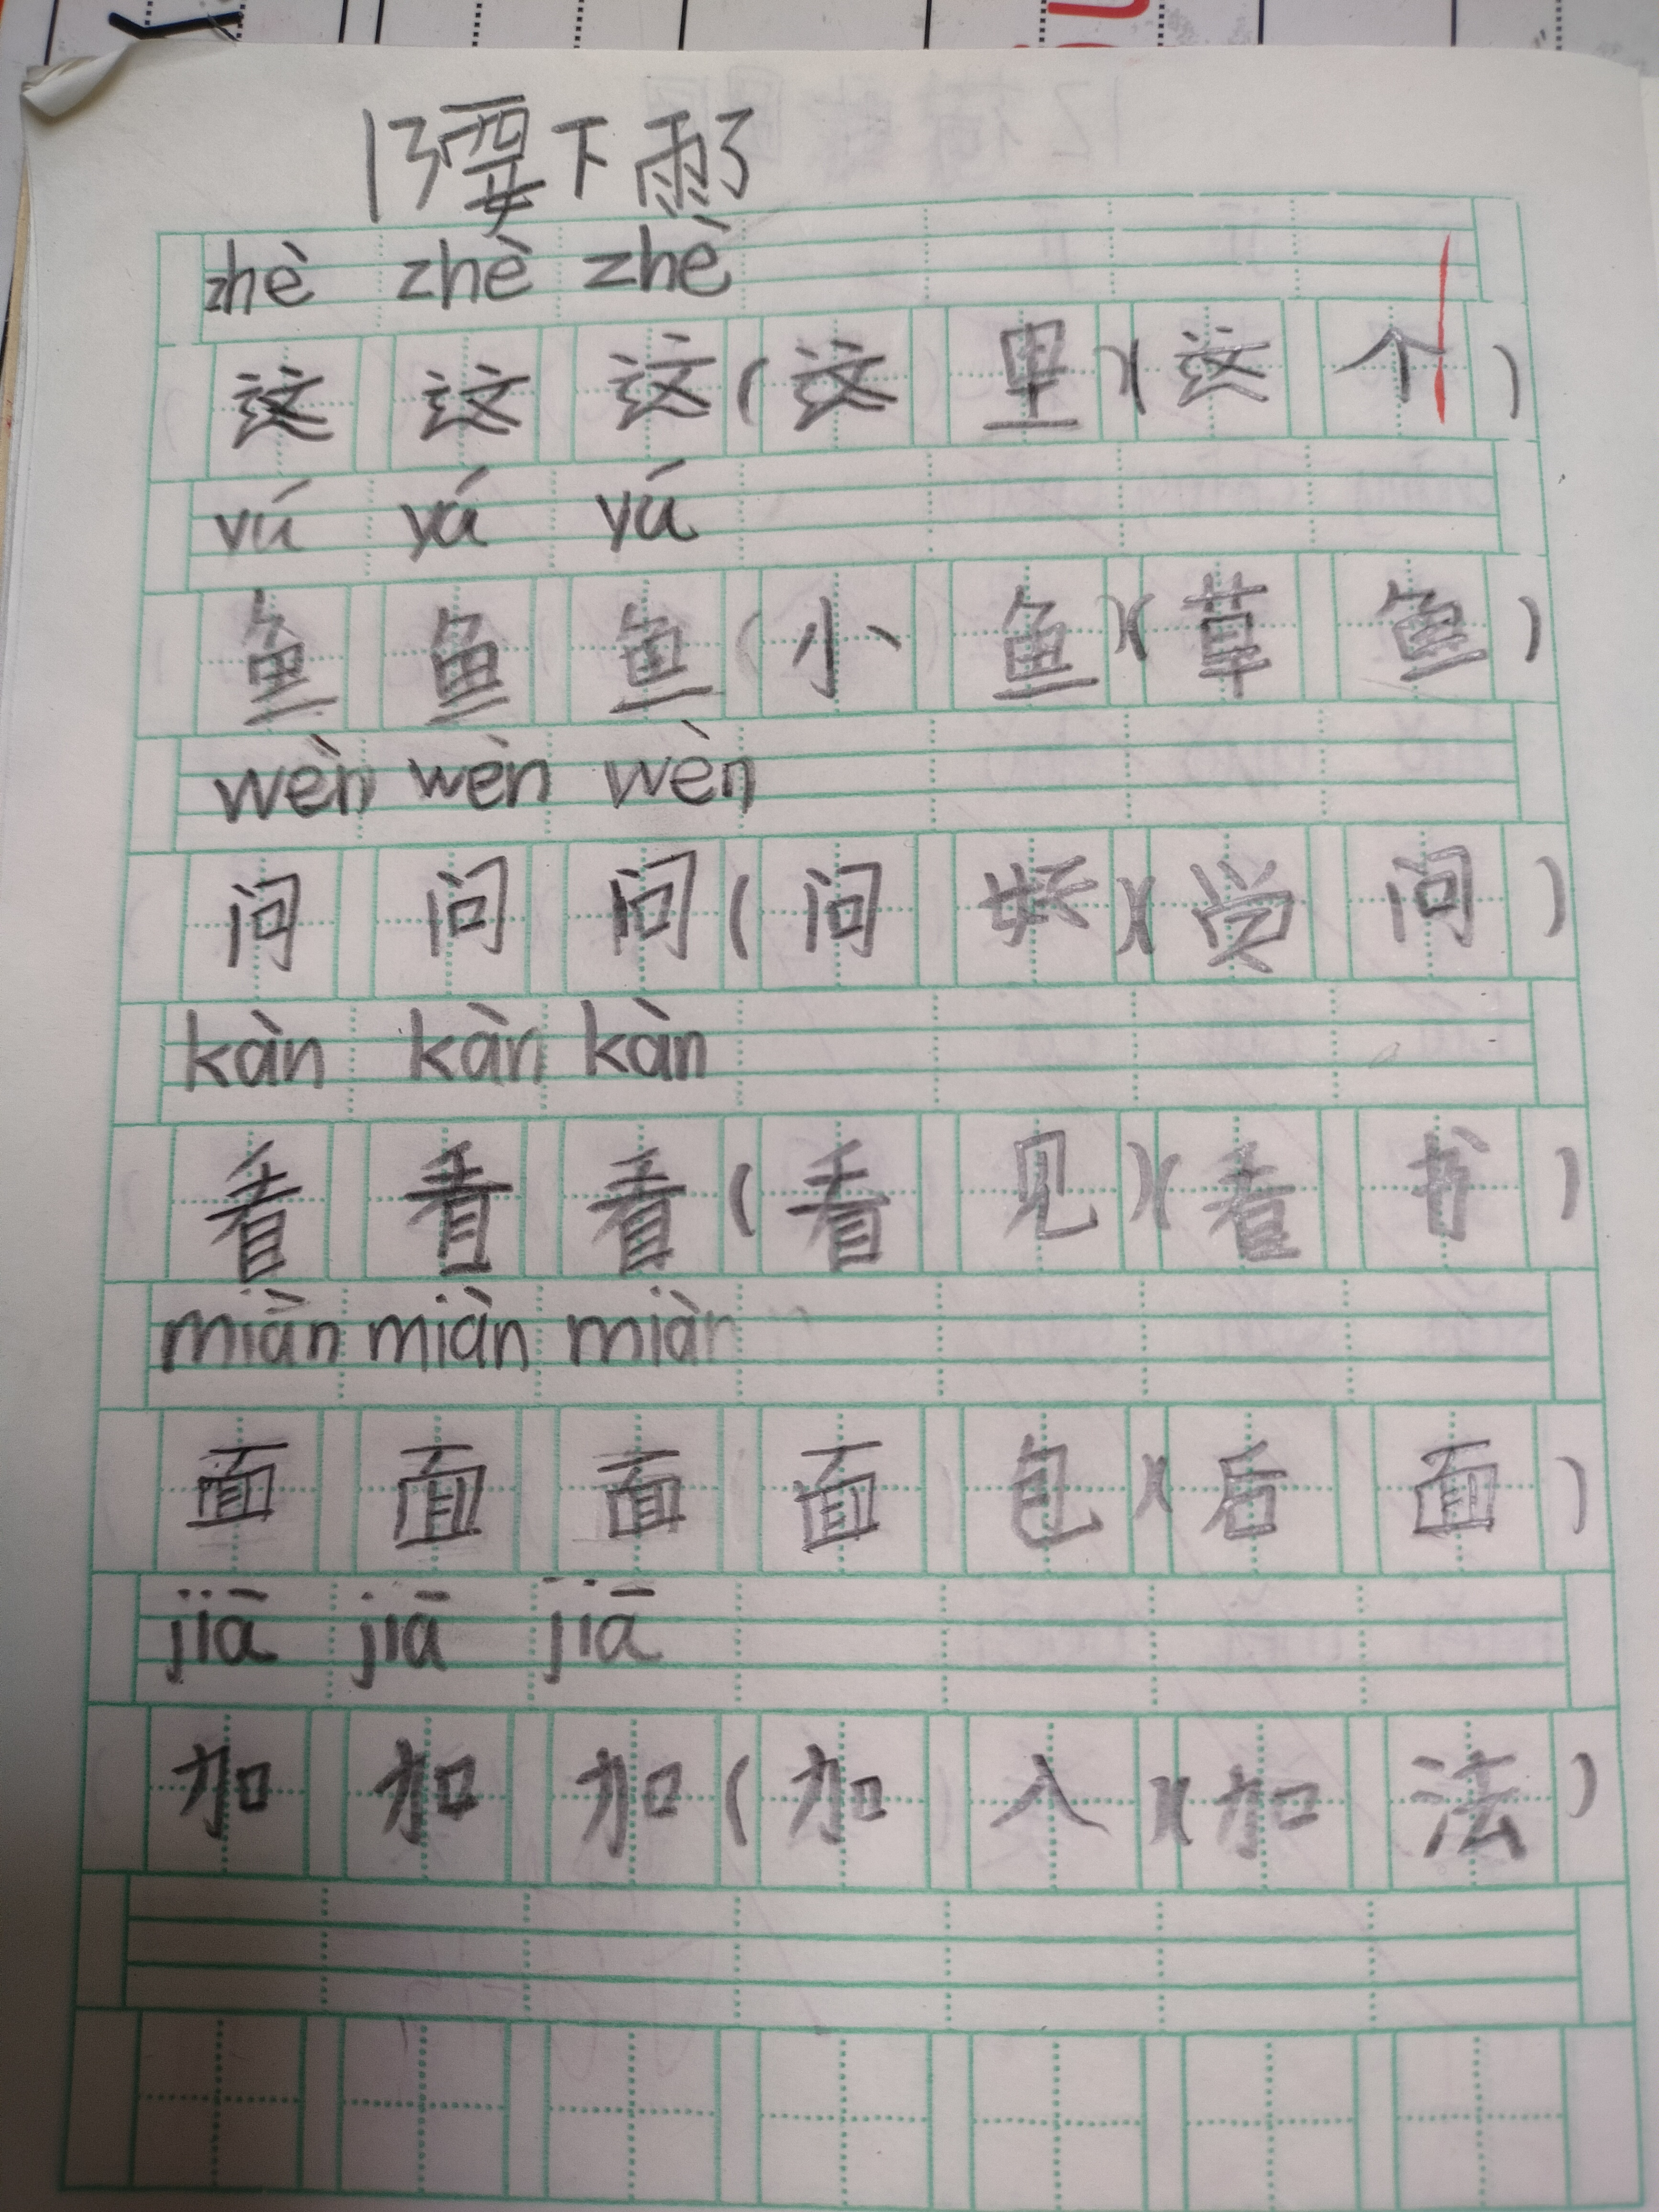 13要下雨了
zhè zhè zhè
这 这 这(这 里)(这 个)
yú yú yú
鱼 鱼 鱼(小 鱼)(草 鱼)
wèn wèn wèn
问 问 问(问 好)(学 问)
kàn kàn kàn
看 看 看(看 见)(看 书)
miàn miàn miàn
面 面 面 面 包)(后 面)
jiā jiā jiā
加 加 加(加 入)(加 法)